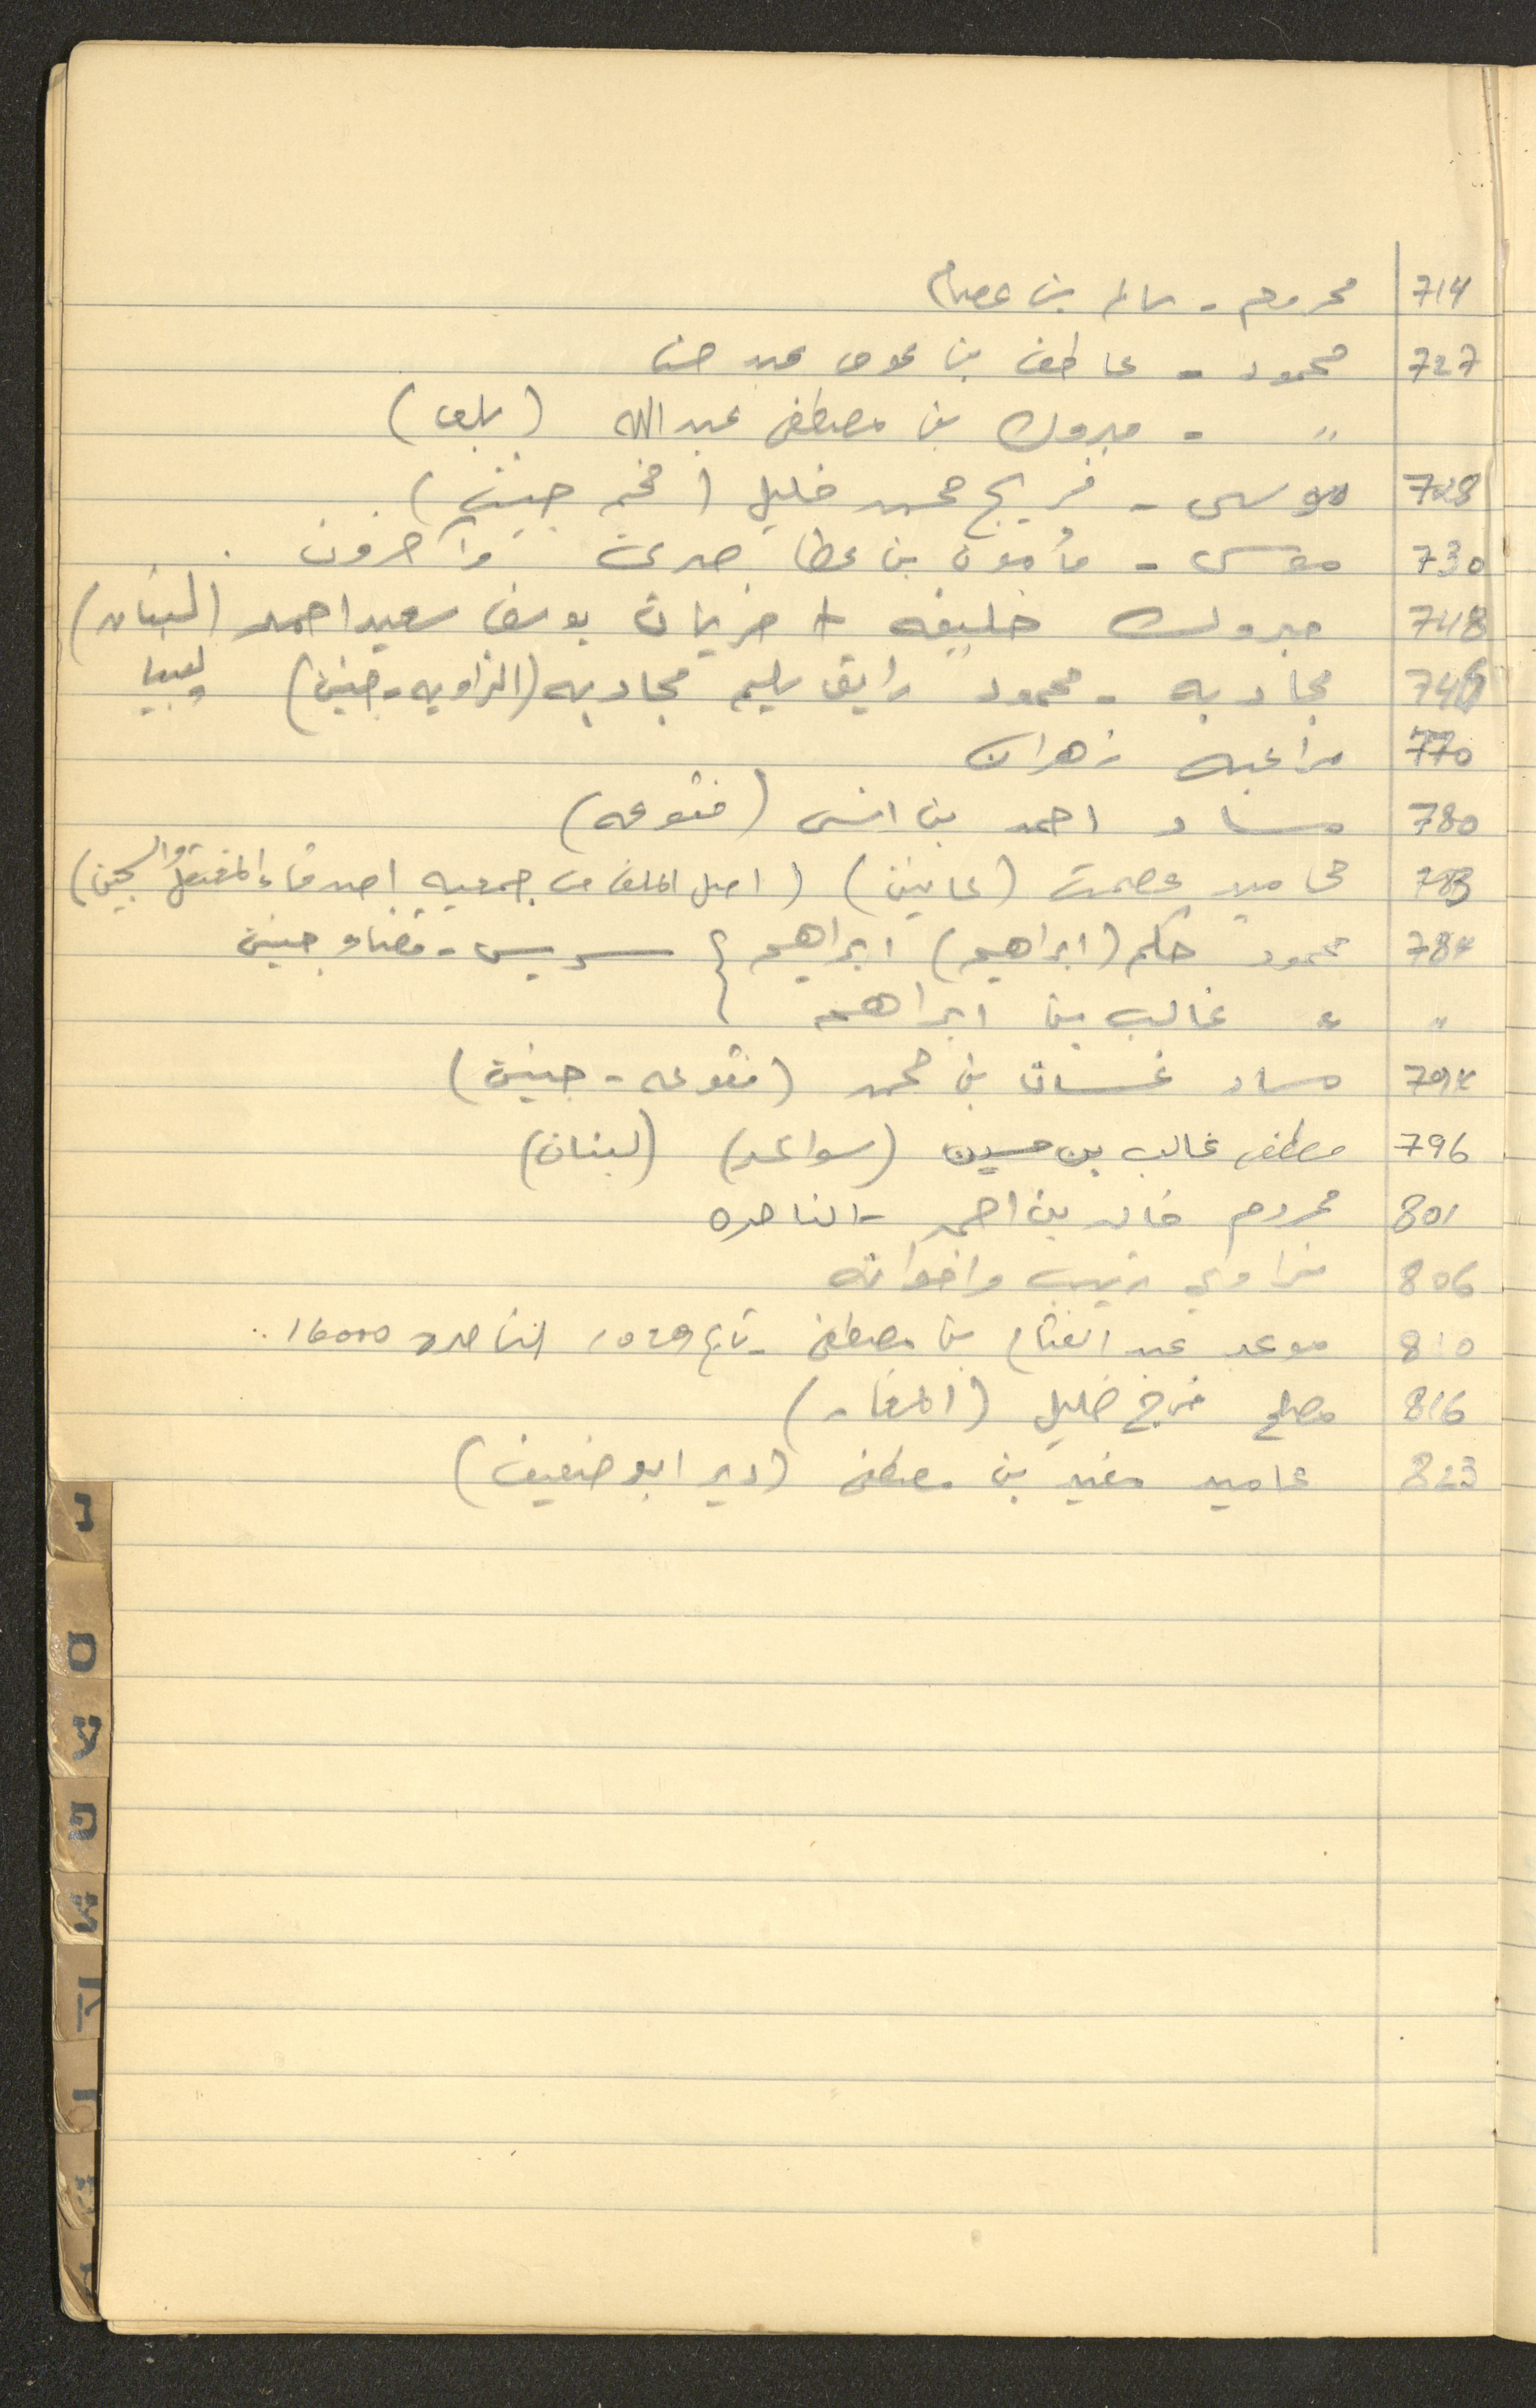 714 محروم - سالم بن عصام
727 محمود - عاطف بن عوض عبد حسن
" - مبروك بن مصطفى عبدالله
728 موسى - فريج محمد خليل (مخيم جنين)
730 موسى - مأمون بن عطا صدى وآخرون
748 مبروك خليفه + يوسف سعيد احمد (لبنان)
مجادبه - محمود رايق سليم مجادبه (الزاويه - جنين) ليبيا
770 مراعبه زهران
780 مساد احمد بن انس (فقوعه)
783 محاميد عصمت (عانين) (اصل الملف من جمعيه اصدقاء المعتقل والسجين)
784 محمود حكم (ابراهيم) ابراهيم } سيريس - قضاء جنين
" " غالب بن ابراهيم
794 مساد غسان بن محمد (فقوعه - جنين)
796 مصطفى غالب بن حسين (سواعد) (لبنان)
801 محروم خالد بن احمد - الناصره
806 مزاوي زينب واخواته
810 موعد عبد الفتاح بن مصطفى - الناصره 16000
816 مصلح فرج خليل (المغار)
823 محاميد مفيد بن مصطفى (دير ابو ضعيف)
נ
ס
ע
פ
צ
ק
ר
ש
ת